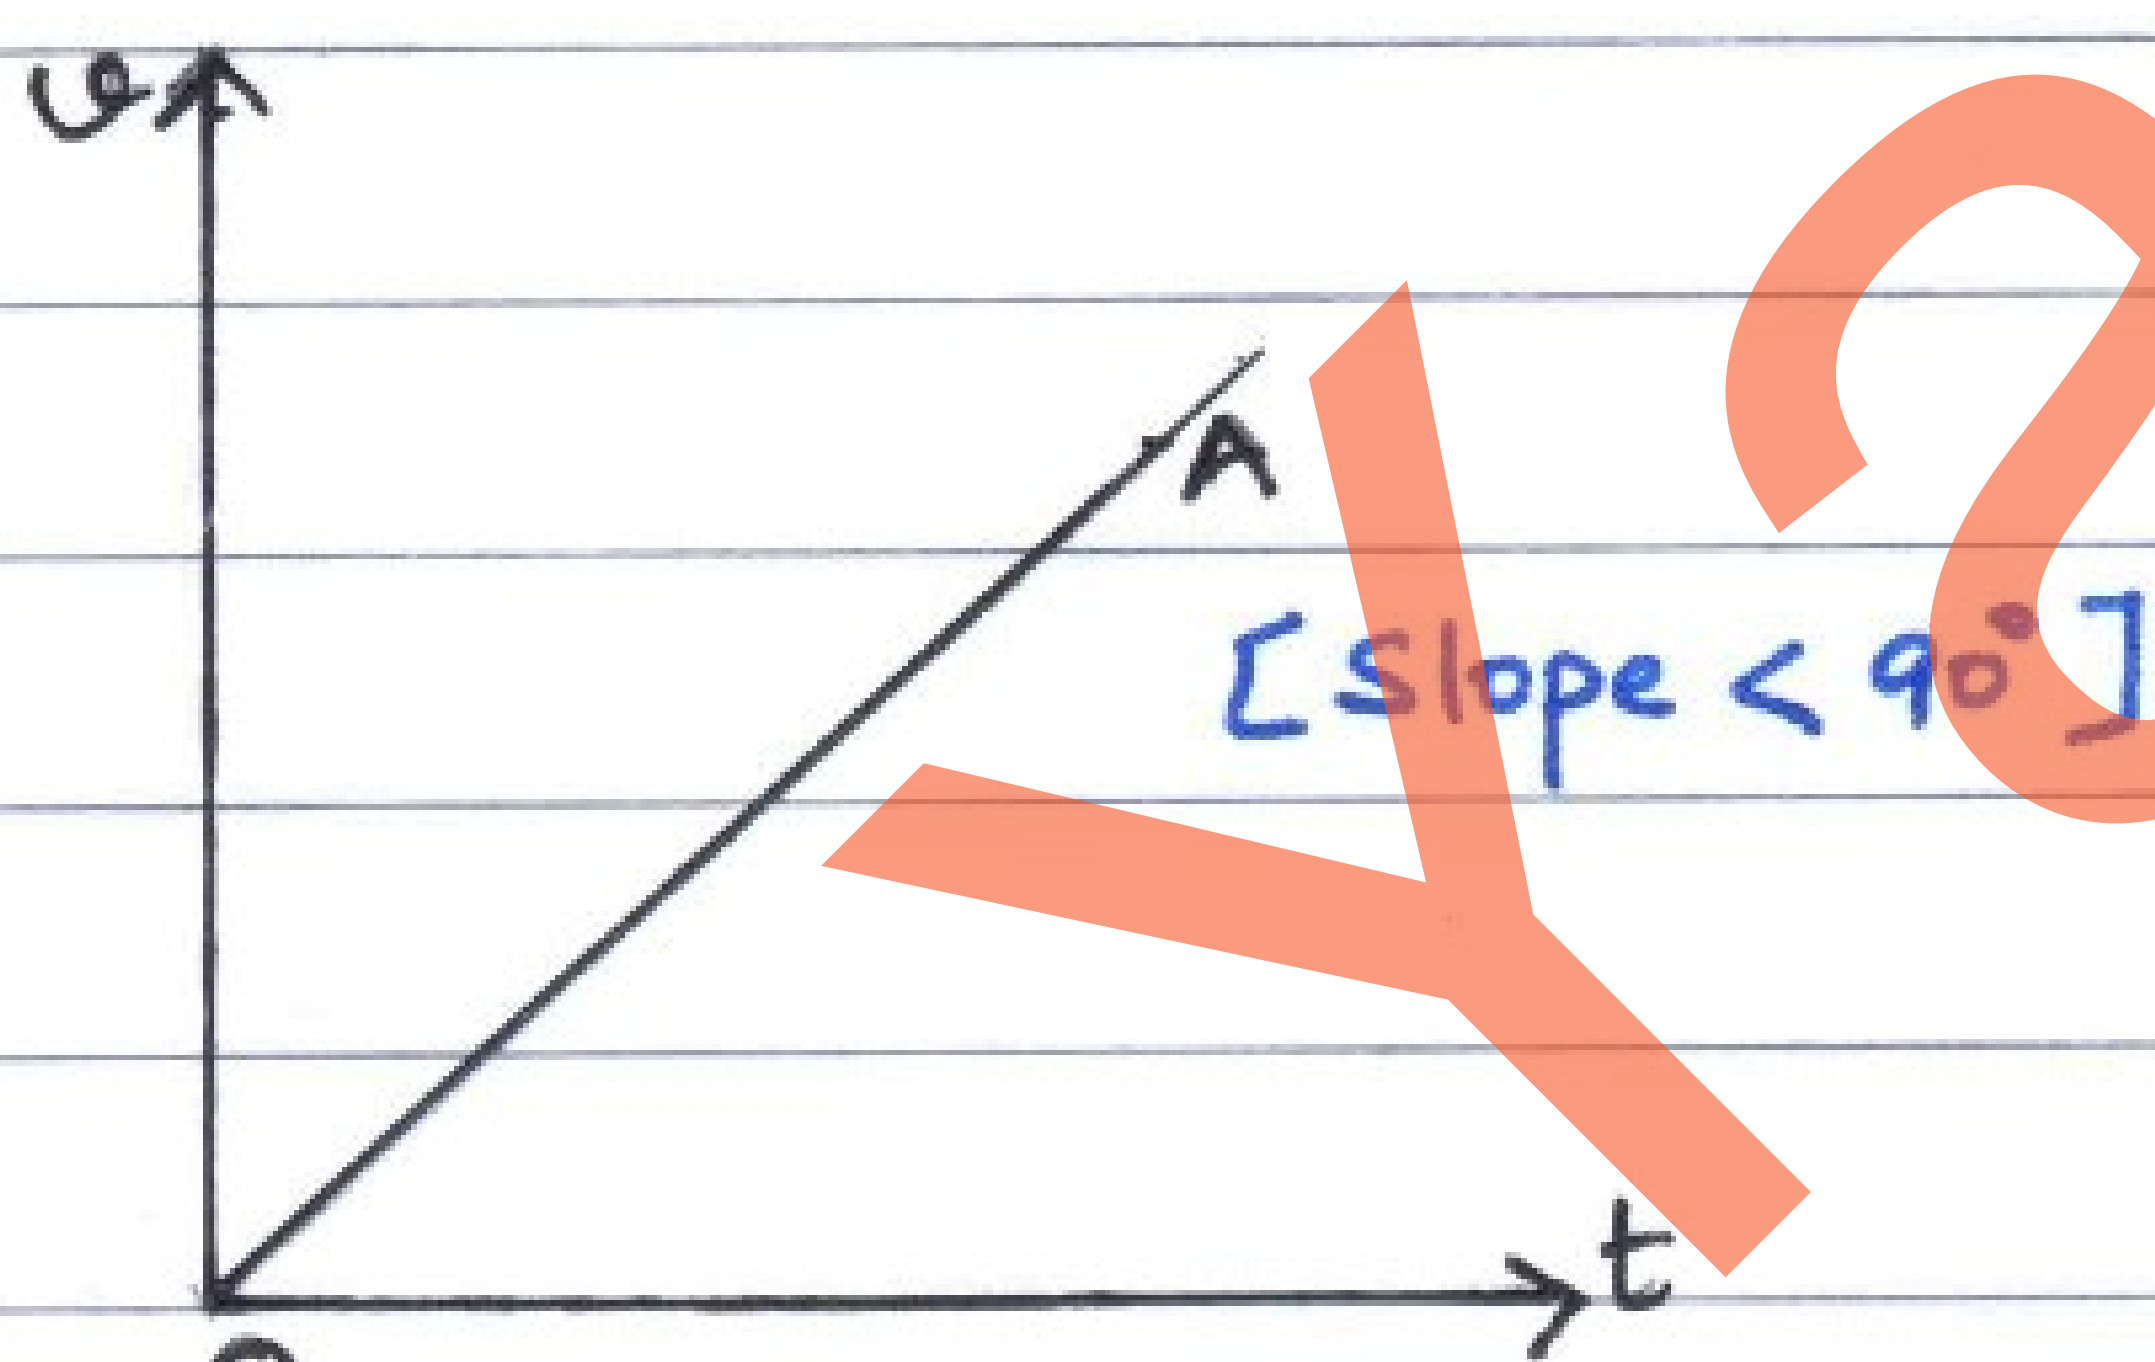 v
A
[Slope < 90°]
t
O